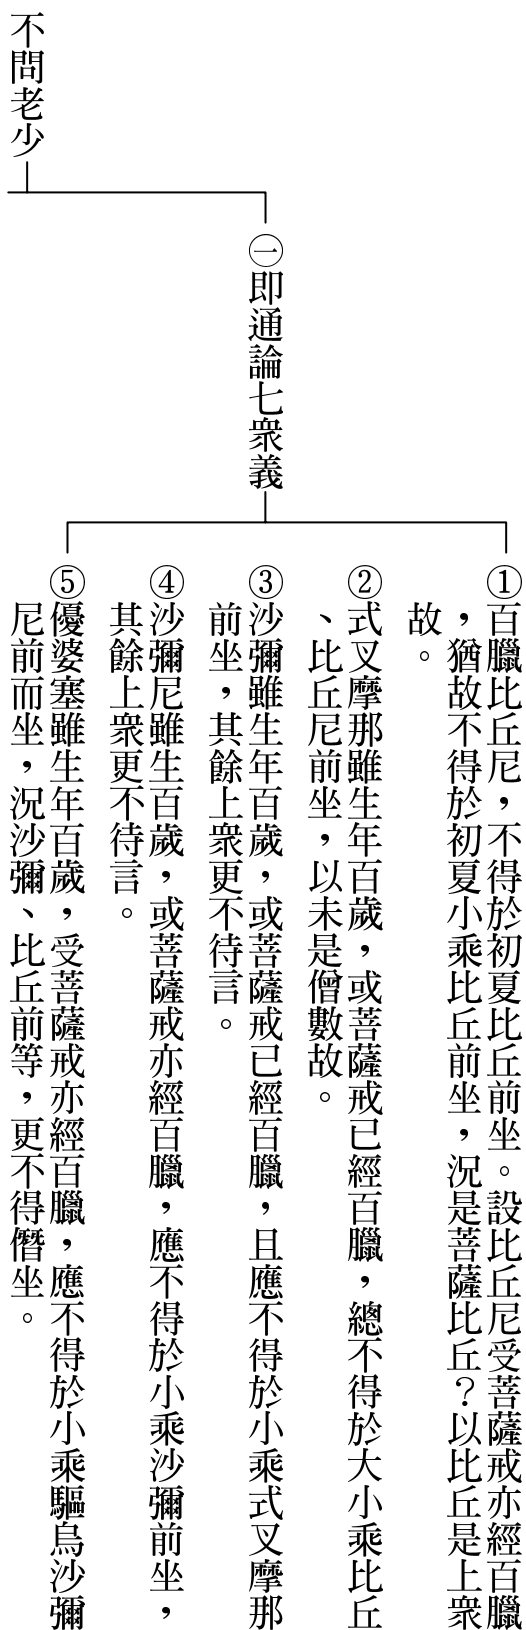 不問老少
㊀即通論七衆義
①百臘比丘尼，不得於初夏比丘前坐。設比丘尼受菩薩戒亦經百臘
，猶故不得於初夏小乘比丘前坐，況是菩薩比丘？以比丘是上衆
故。
②式叉摩那雖生年百歲，或菩薩戒已經百臘，總不得於大小乘比丘
、比丘尼前坐，以未是僧數故。
③沙彌雖生年百歲，或菩薩戒已經百臘，且應不得於小乘式叉摩那
前坐，其餘上衆更不待言。
④沙彌尼雖生百歲，或菩薩戒亦經百臘，應不得於小乘沙彌前坐，
其餘上衆更不待言。
⑤優婆塞雖生年百歲，受菩薩戒亦經百臘，應不得於小乘驅烏沙彌
尼前而坐，況沙彌、比丘前等，更不得僭坐。